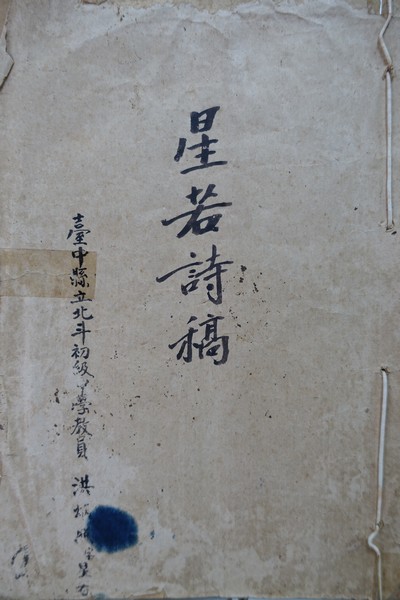 星若詩稿
臺中縣立北斗初級中學教員 洪